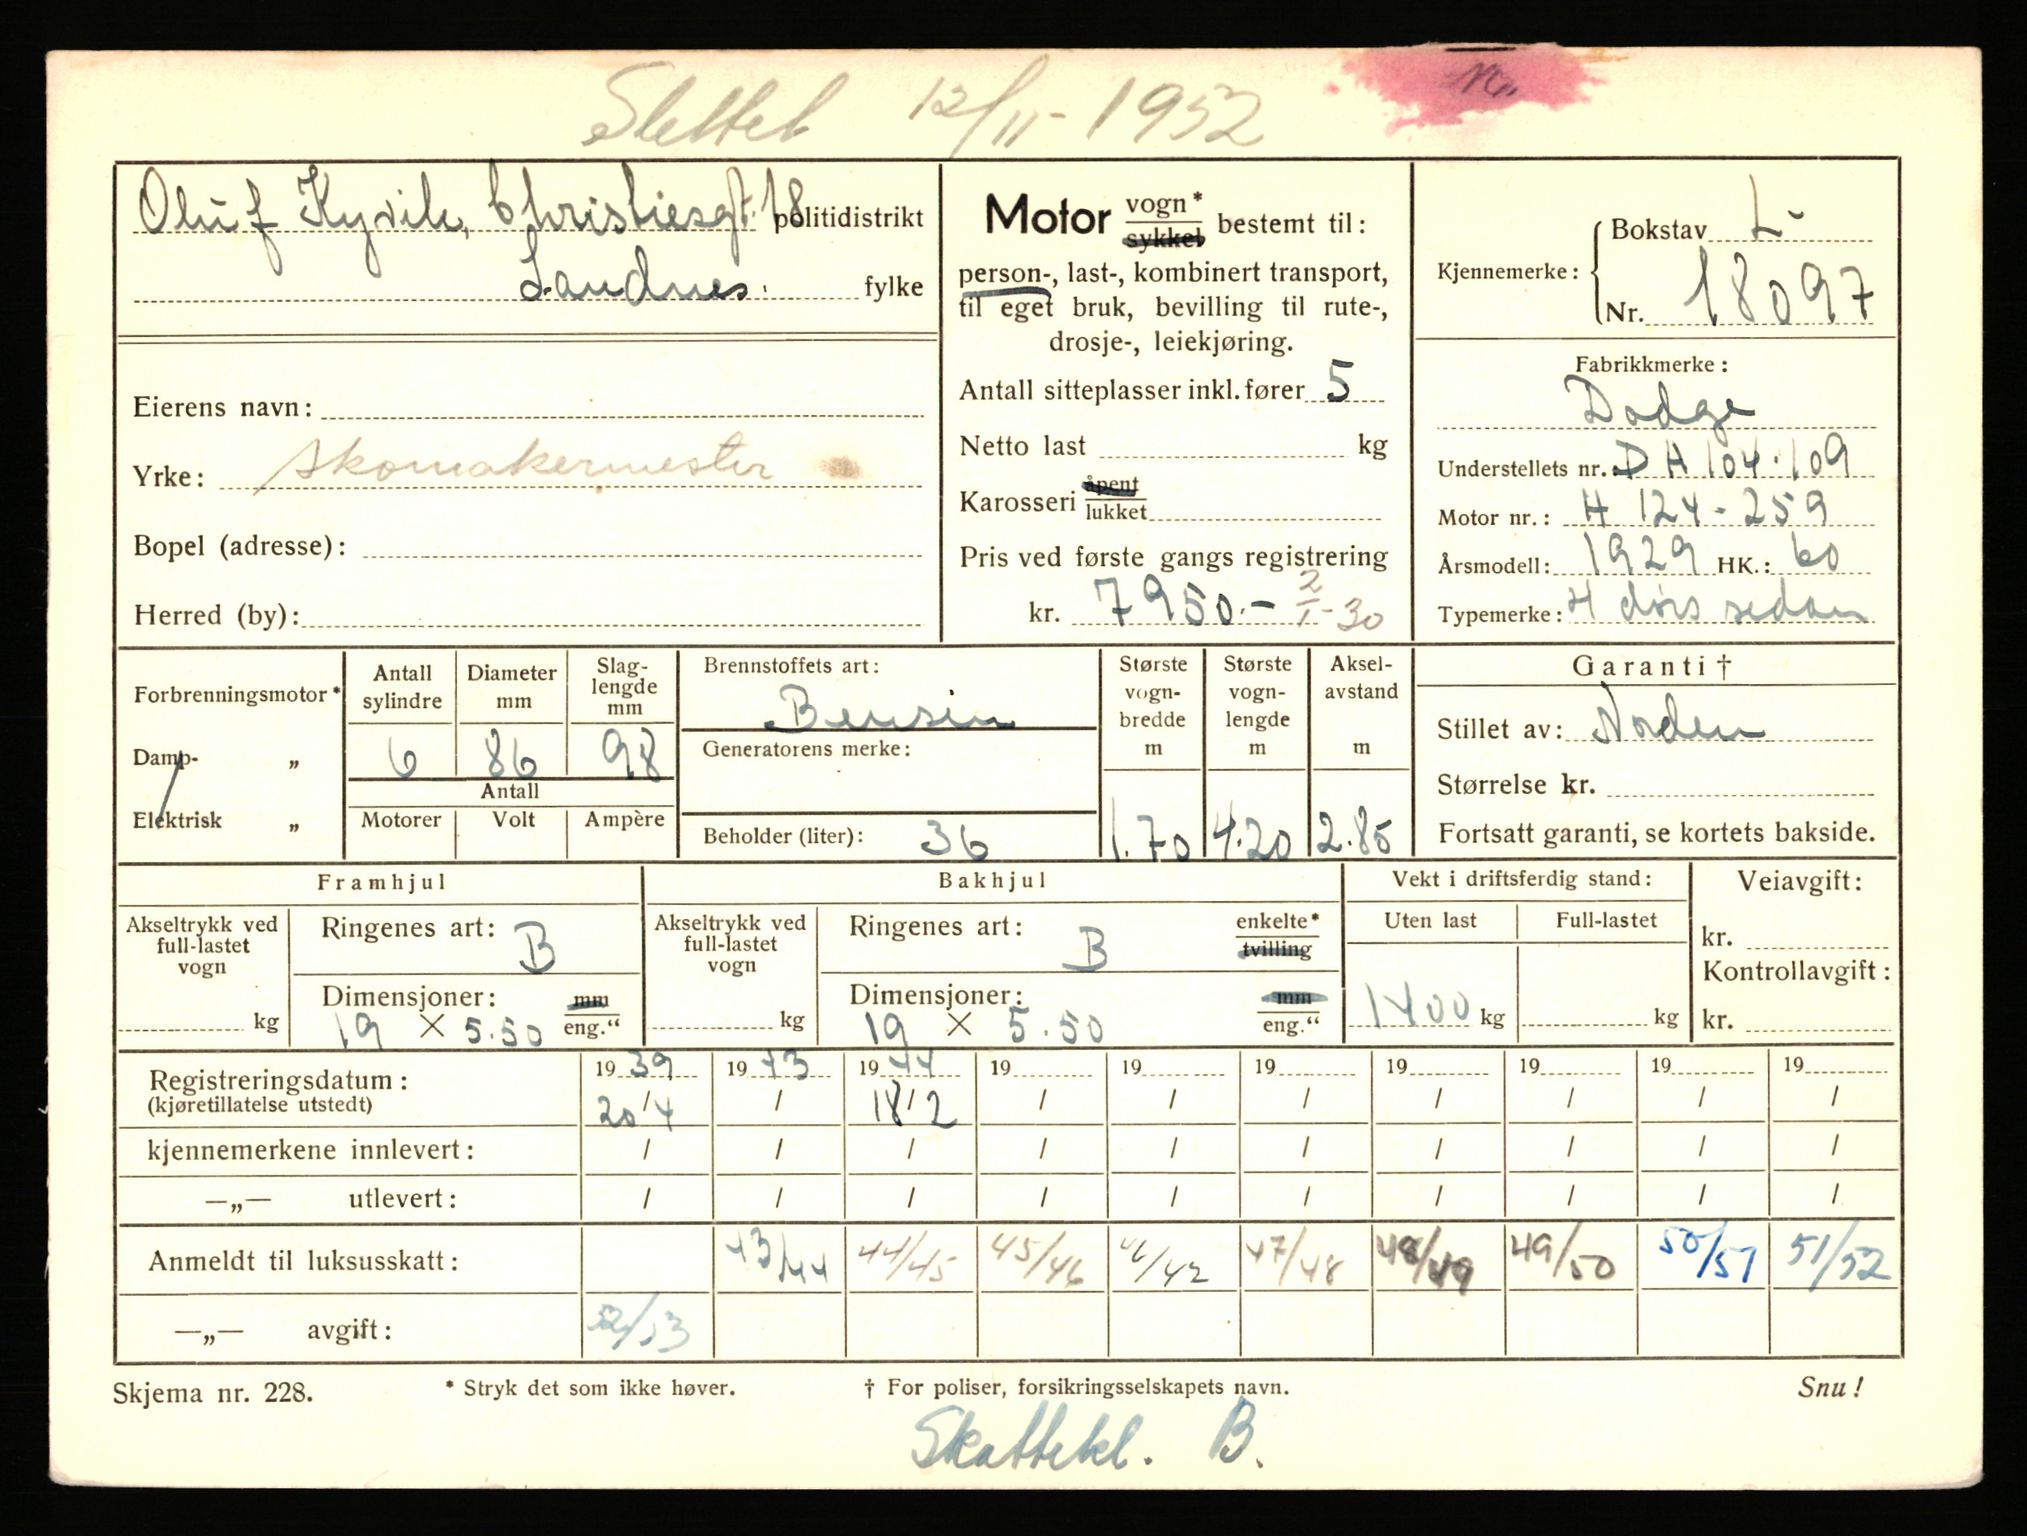 Slettet 12/11-1952
Oluf Kyvik, Christiesgt. 18 politidistrikt
Sandnes. fylke
Eierens navn:
Yrke: Skomakermester
Bopel (adresse):
Herred (by):
Motor vogn* sykkel bestemt til:
person-, last-, kombinert transport,
til eget bruk, bevilling til rute-,
drosje-, leiekjøring.
Antall sitteplasser inkl. fører 5
Netto last kg
Karosseri åpent lukket
Pris ved første gangs registrering
kr. 7950.- 2/1-30
Kjennemerke: Bokstav L-
Nr. 18097
Fabrikkmerke:
Dodge
Understellets nr. DH 104.109
Motor nr.: H 124-259
Årsmodell: 1929 HK.: 60
Typemerke: H dørs sedan
Forbrenningsmotor*
Damp- „
Elektrisk „
Antall sylindre
Diameter mm
Slag-lengde mm
6 86 98
Antall
Motorer Volt Ampère
Brennstoffets art:
Bensin
Generatorens merke:
Beholder (liter): 36
Største vogn-bredde m
Største vogn-lengde m
Aksel-avstand m
1.70 4.20 2.85
Garanti †
Stillet av: Norden
Størrelse kr.
Fortsatt garanti, se kortets bakside.
Framhjul
Akseltrykk ved full-lastet vogn
kg
Ringenes art: B
Dimensjoner: mm
19 × 5.50 eng.“
Bakhjul
Akseltrykk ved full-lastet vogn
kg
Ringenes art: B enkelte* tvilling
Dimensjoner: mm
19 × 5.50 eng.“
Vekt i driftsferdig stand:
Uten last Full-lastet
1400 kg kg
Veiavgift:
kr.
Kontrollavgift:
kr.
Registreringsdatum: 1939 1943 1944 19 19 19 19 19 19 19
(kjøretillatelse utstedt) 20/4 / 18/2 / / / / / / /
kjennemerkene innlevert: / / / / / / / / / /
—„— utlevert: / / / / / / / / / /
Anmeldt til luksusskatt: 43/44 44/45 45/46 47/48 48/49 49/50 50/51 51/52
—„— avgift: 52/53
Skjema nr. 228. * Stryk det som ikke høver. † For poliser, forsikringsselskapets navn. Snu!
Skattekl. B.